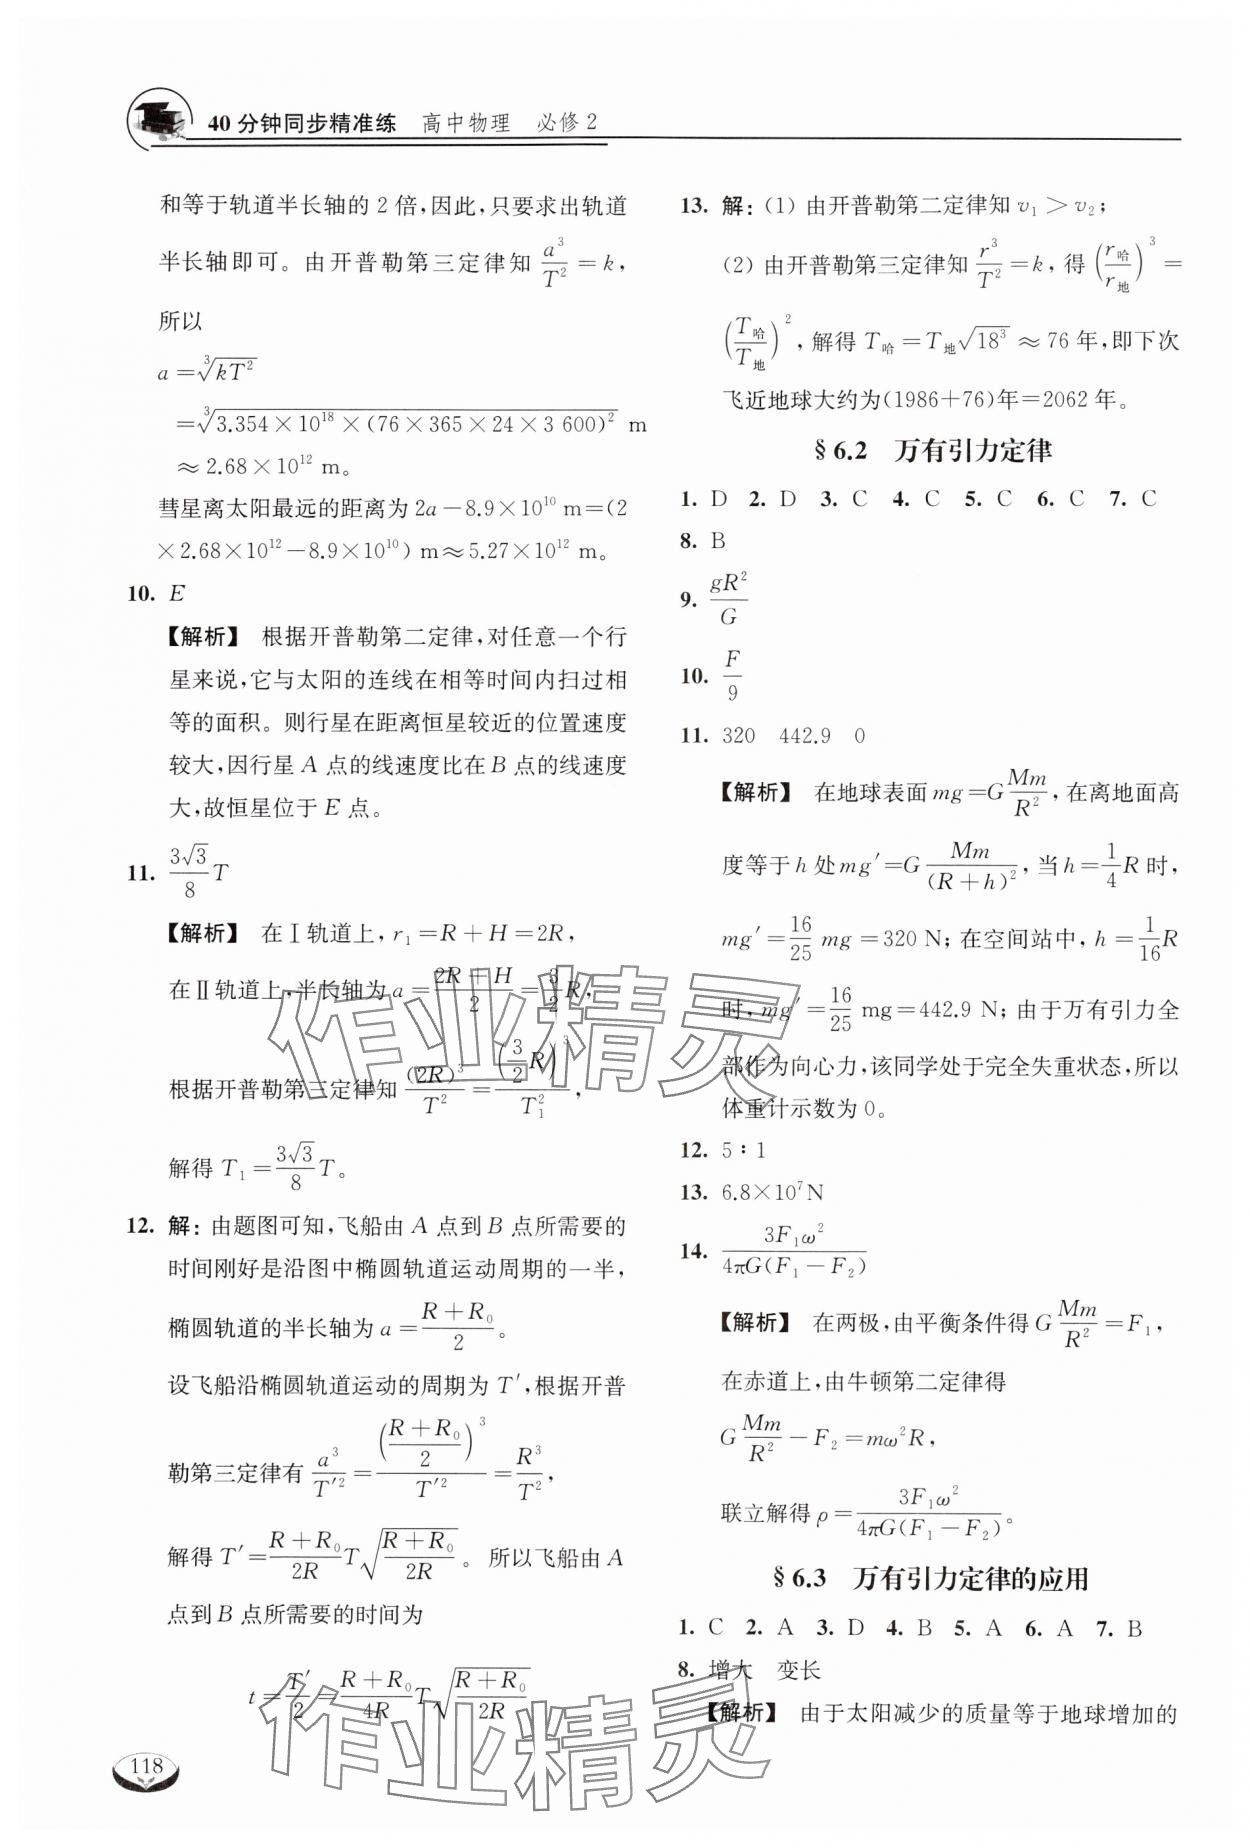 40分钟同步精准练 高中物理 必修2
和等于轨道半长轴的2倍,因此,只要求出轨道
半长轴即可。由开普勒第三定律知 a³/T²=k,
所以
a=∛(kT²)
=∛(3.354×10¹⁸×(76×365×24×3 600)²) m
≈2.68×10¹² m。
彗星离太阳最远的距离为2a-8.9×10¹⁰ m=(2
×2.68×10¹²-8.9×10¹⁰) m≈5.27×10¹² m。
10. E
【解析】 根据开普勒第二定律,对任意一个行
星来说,它与太阳的连线在相等时间内扫过相
等的面积。则行星在距离恒星较近的位置速度
较大,因行星A点的线速度比在B点的线速度
大,故恒星位于E点。
11. (3√3/8)T
【解析】 在Ⅰ轨道上,r₁=R+H=2R,
在Ⅱ轨道上,半长轴为a=(2R+H)/2=(3/2)R,
根据开普勒第三定律知 (2R)³/T²=((3/2)R)³/T₁²,
解得 T₁=(3√3/8)T。
12. 解:由题图可知,飞船由A点到B点所需要的
时间刚好是沿图中椭圆轨道运动周期的一半,
椭圆轨道的半长轴为a=(R+R₀)/2。
设飞船沿椭圆轨道运动的周期为T′,根据开普
勒第三定律有 a³/T′²=((R+R₀)/2)³/T′²=R³/T²,
解得 T′=((R+R₀)/2R)T√((R+R₀)/2R)。所以飞船由A
点到B点所需要的时间为
t=T′/2=((R+R₀)/4R)T√((R+R₀)/2R)
118
13. 解:(1) 由开普勒第二定律知 v₁>v₂;
(2) 由开普勒第三定律知 r³/T²=k,得 (r哈/r地)³=
(T哈/T地)²,解得 T哈=T地√(18³)≈76年,即下次
飞近地球大约为(1986+76)年=2062年。
§6.2 万有引力定律
1. D 2. D 3. C 4. C 5. C 6. C 7. C
8. B
9. gR²/G
10. F/9
11. 320 442.9 0
【解析】 在地球表面mg=G(Mm/R²),在离地面高
度等于h处mg′=G(Mm/(R+h)²),当h=(1/4)R时,
mg′=(16/25)mg=320 N;在空间站中,h=(1/16)R
时,mg′=(16/25)mg=442.9 N;由于万有引力全
部作为向心力,该同学处于完全失重状态,所以
体重计示数为0。
12. 5∶1
13. 6.8×10⁷N
14. 3F₁ω²/(4πG(F₁-F₂))
【解析】 在两极,由平衡条件得G(Mm/R²)=F₁,
在赤道上,由牛顿第二定律得
G(Mm/R²)-F₂=mω²R,
联立解得ρ=3F₁ω²/(4πG(F₁-F₂))。
§6.3 万有引力定律的应用
1. C 2. A 3. D 4. B 5. A 6. A 7. B
8. 增大 变长
【解析】 由于太阳减少的质量等于地球增加的
作业精灵
作业精灵